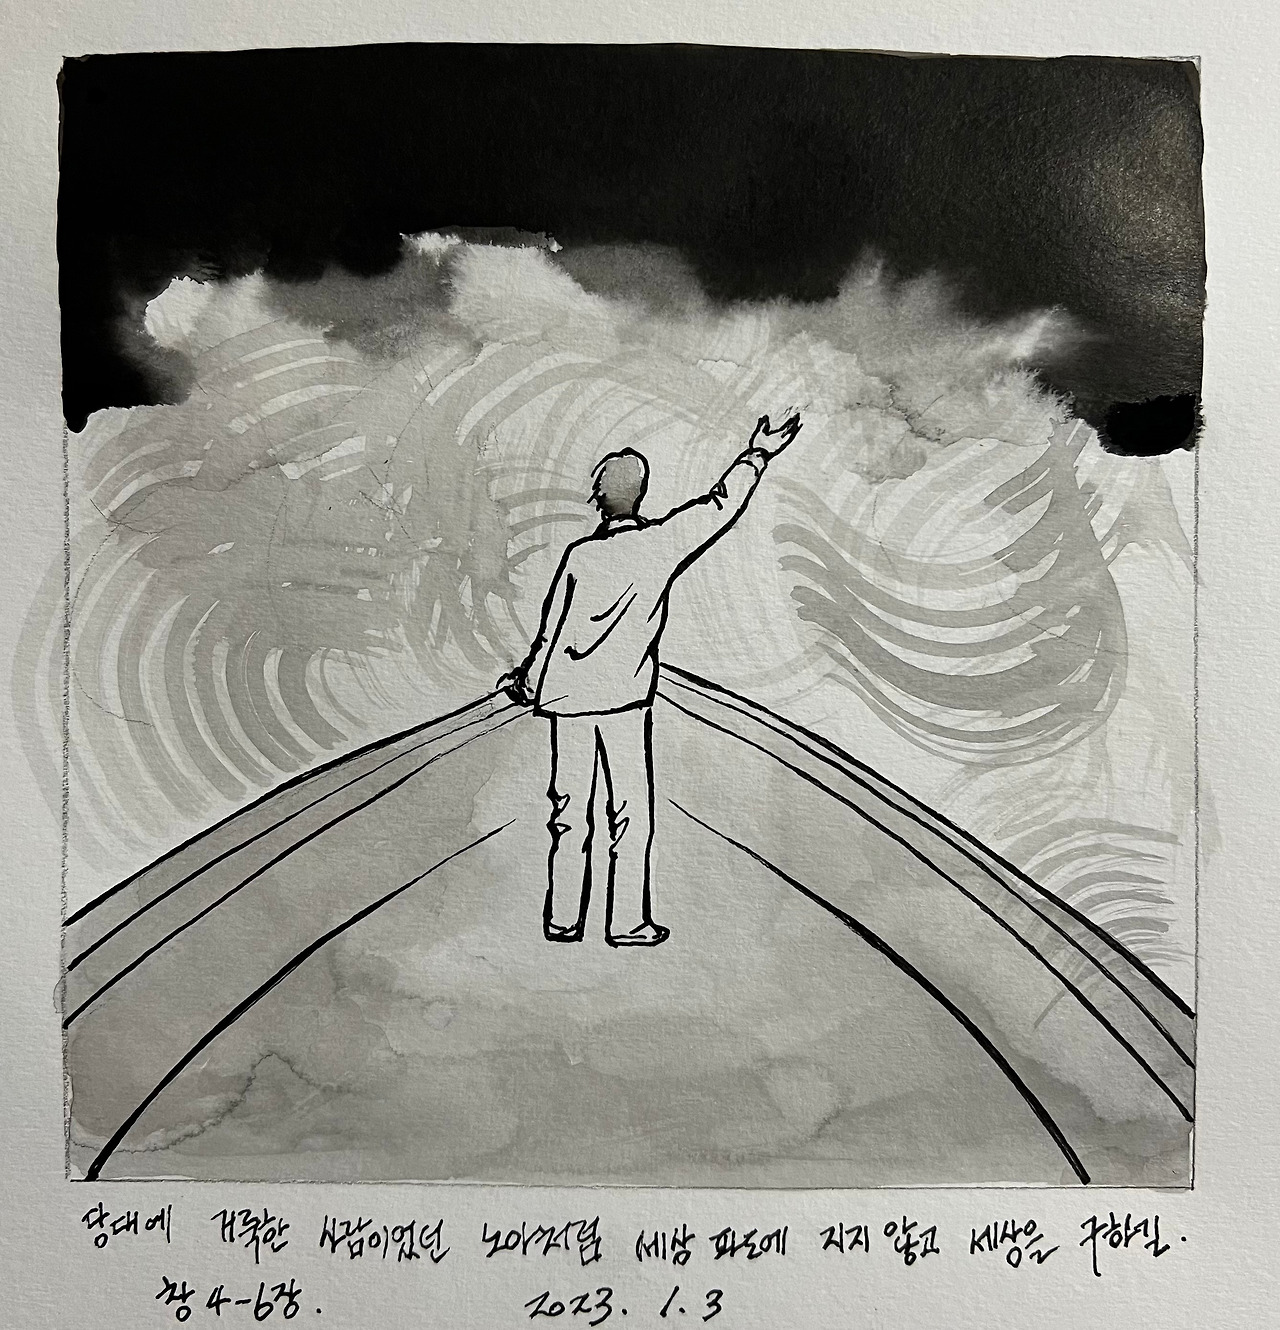 당대에 거룩한 사람이었던 노아처럼 세상 파도에 지지 않고 세상을 구하길.
창 4-6장. 2023. 1. 3